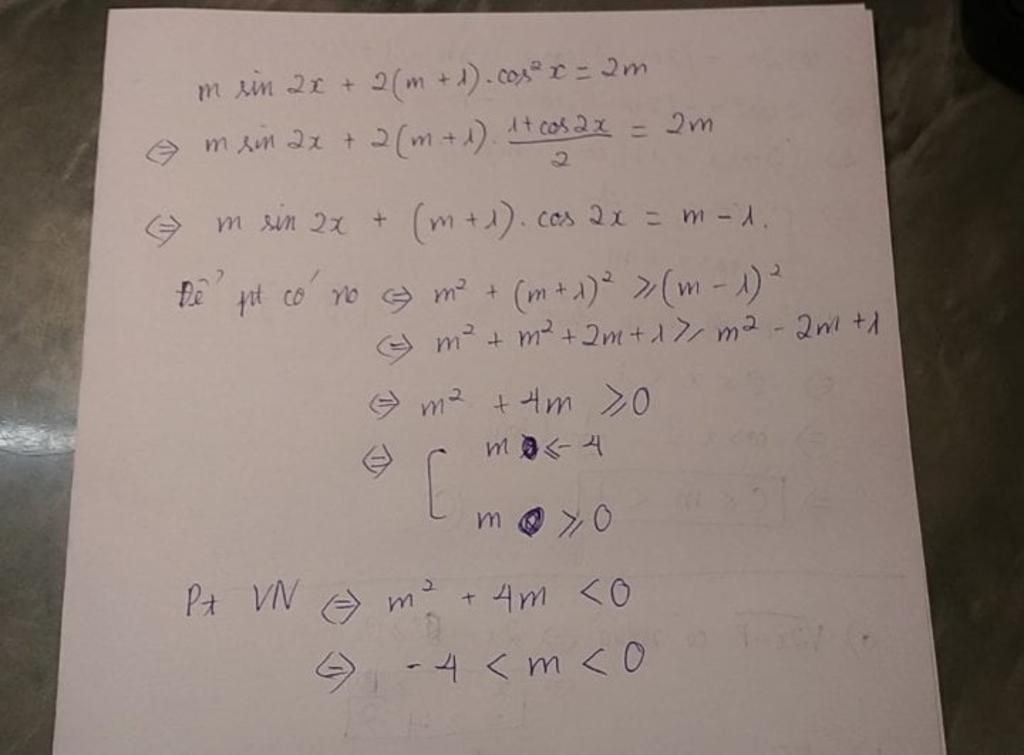 m sin 2x + 2(m + 1).cos² x = 2m
⇔ m sin 2x + 2(m + 1). (1 + cos 2x)/2 = 2m
⇔ m sin 2x + (m + 1). cos 2x = m - 1.
Để pt có no ⇔ m² + (m + 1)² ≥ (m - 1)²
⇔ m² + m² + 2m + 1 ≥ m² - 2m + 1
⇔ m² + 4m ≥ 0
⇔ [ m ≤ -4
m ≥ 0
Pt VN ⇔ m² + 4m < 0
⇔ -4 < m < 0